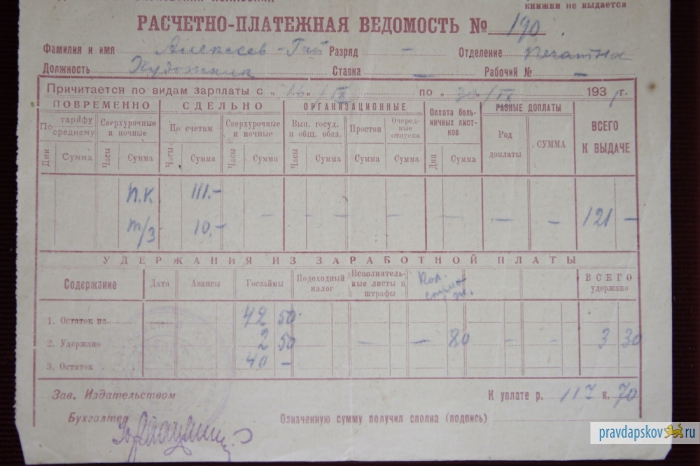 книжки не выдается
РАСЧЕТНО-ПЛАТЕЖНАЯ ВЕДОМОСТЬ № 190
Фамилия и имя Алексеев-Гай Разряд — Отделение
Должность Художник Ставка — Рабочий № —
Причитается по видам зарплаты с 16/IX по 30/IX 193 г.
ПОВРЕМЕННО СДЕЛЬНО ОРГАНИЗАЦИОННЫЕ Оплата больничных листков РАЗНЫЕ ДОПЛАТЫ ВСЕГО К ВЫДАЧЕ
По тарифу среднему Сверхурочные и ночные По счетам Сверхурочные и ночные Вып. госуд. и общ. обяз. Простои Очередные отпуска Род доплаты СУММА
Дни Сумма Часы Сумма Сумма Часы Сумма Часы Сумма Часы Сумма Сумма Дни Сумма
п.к 111.-
т/з 10.- — — — — — — 121 —
УДЕРЖАНИЯ ИЗ ЗАРАБОТНОЙ ПЛАТЫ
Содержание Дата Авансы Госзаймы Подоходный налог Исполнительные листы и штрафы ВСЕГО удержано
1. Остаток на 42 50
2. Удержано 2 50 — — 80 3 30
3. Остаток 40 —
Зав. Издательством К уплате р. 117 к. 70
Бухгалтер Означенную сумму получил сполна (подпись)
pravdapskov.ru